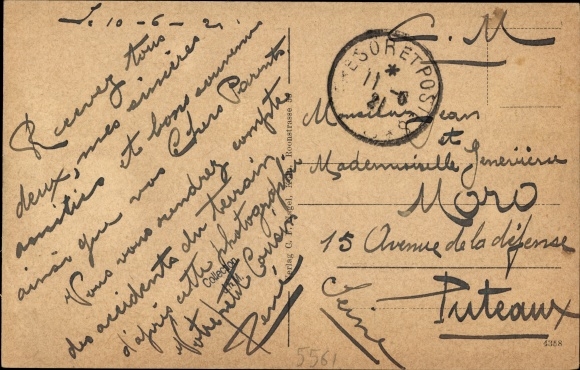 le 10-6-21
Recevez tous
deux, mes sincères
amitiés et bons souvenirs
ainsi que vos Chers Parents
Vous vous rendrez compte
des accidents du terrain,
d'après cette photographie
Votre petit Cousin
René
Collection
Verlag C. Roonstrasse
F. M
TRESOR ET POSTES
*
11-6
21
Monsieur Jean
et
Mademoiselle Geneviève
MORO
15 Avenue de la défense
Puteaux
Seine
4358
5561